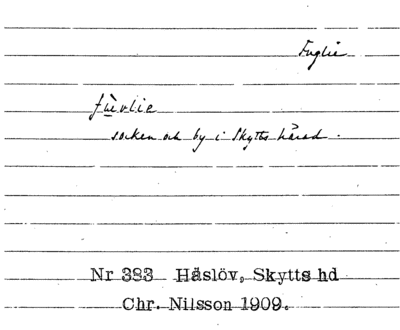 Fuglie
fùvlie
socken och by i Skytts härad.
Nr 383 Häslöv, Skytts hd
Chr. Nilsson 1909.